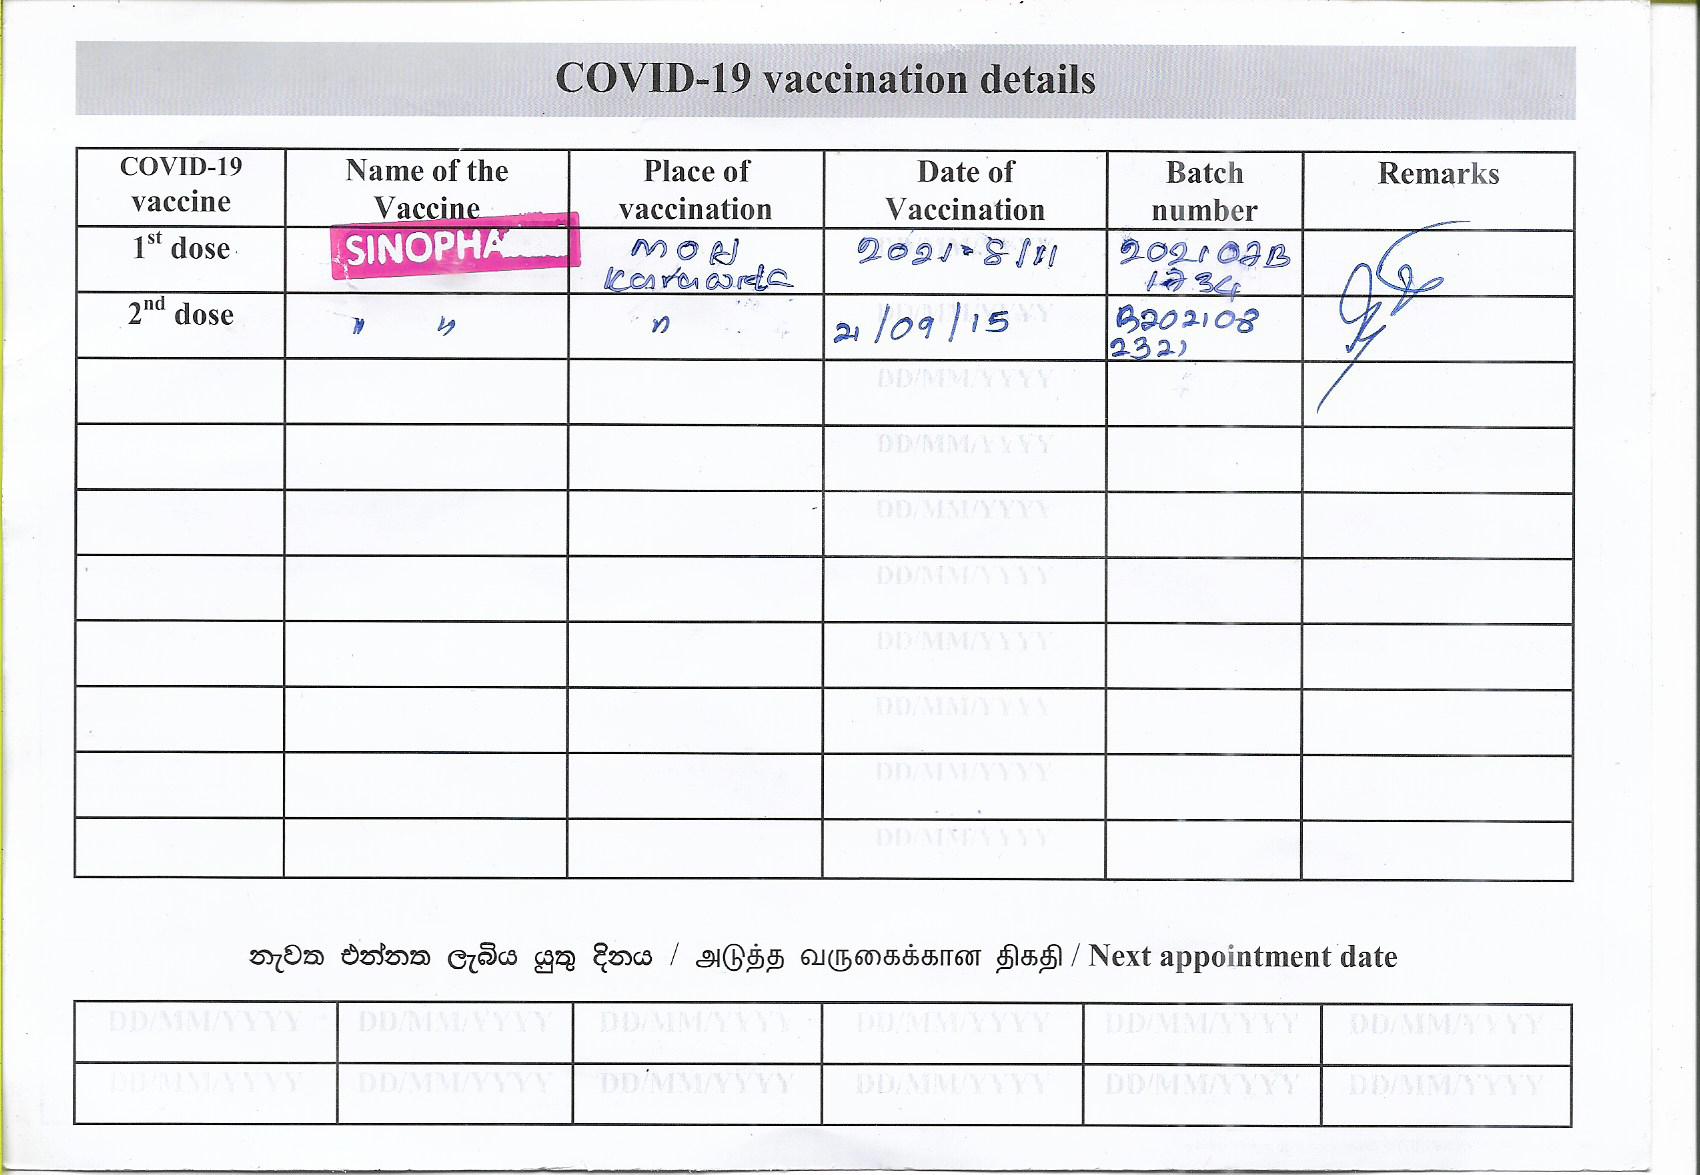 COVID-19 vaccination details
COVID-19 vaccine
Name of the Vaccine
Place of vaccination
Date of Vaccination
Batch number
Remarks
1st dose
SINOPHA
MOH
2021-8/11
202107B
1734
2nd dose
" "
"
21/09/15
B202108
2321
DD/MM/YYYY
DD/MM/YYYY
DD/MM/YYYY
DD/MM/YYYY
DD/MM/YYYY
DD/MM/YYYY
DD/MM/YYYY
DD/MM/YYYY
නැවත එන්නත ලැබිය යුතු දිනය / அடுத்த வருகைக்கான திகதி / Next appointment date
DD/MM/YYYY DD/MM/YYYY DD/MM/YYYY DD/MM/YYYY DD/MM/YYYY DD/MM/YYYY
DD/MM/YYYY DD/MM/YYYY DD/MM/YYYY DD/MM/YYYY DD/MM/YYYY DD/MM/YYYY